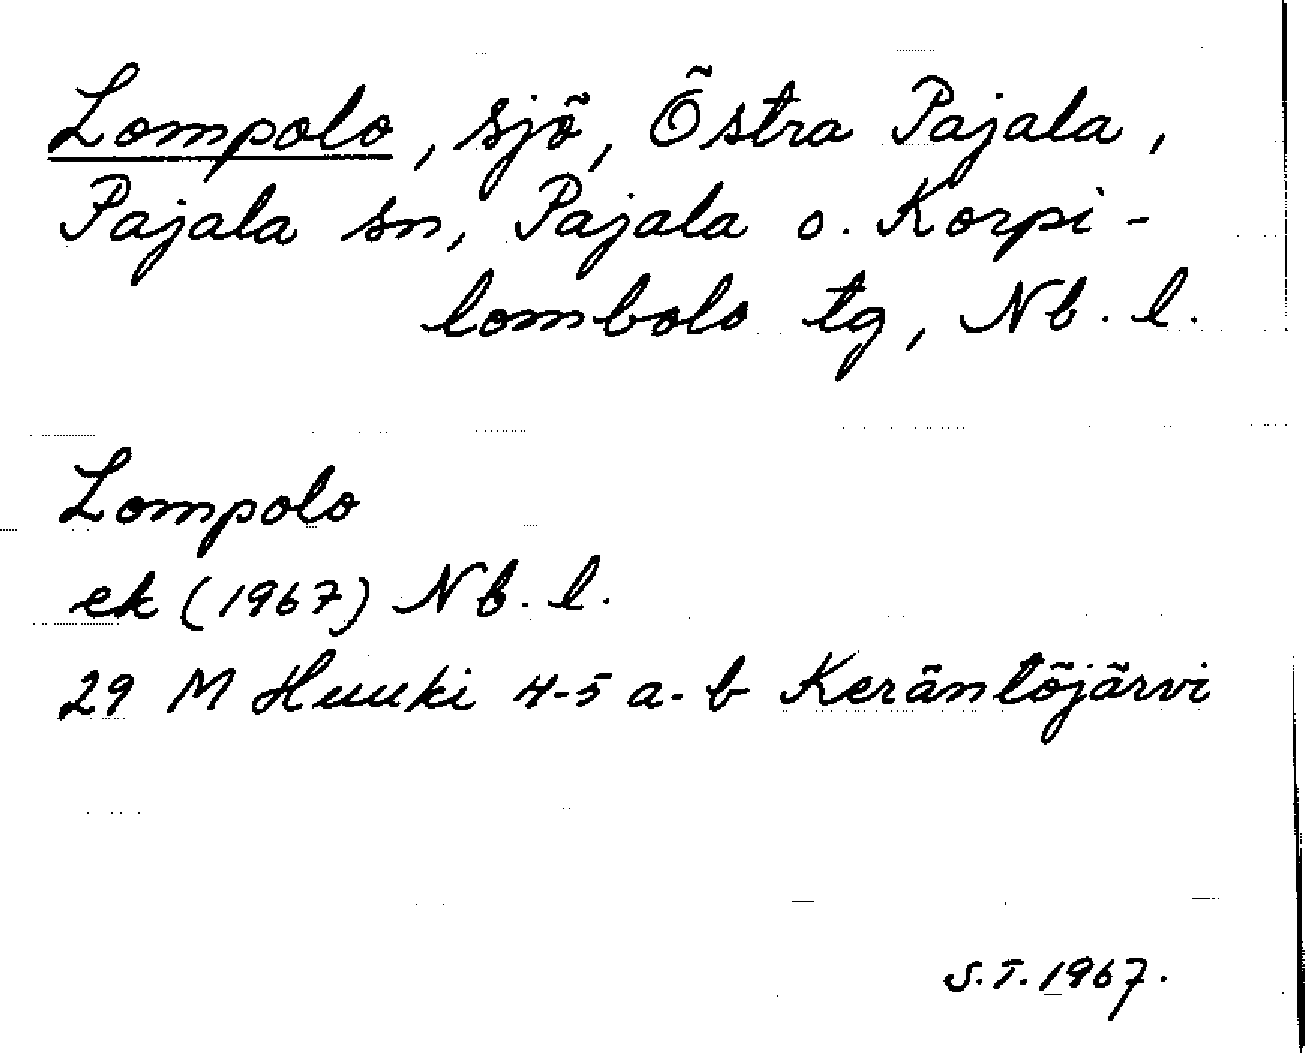 Lompolo, sjö, Östra Pajala,
Pajala sn, Pajala o. Korpi-
lombolo tg, Nb. l.
Lompolo
ek (1967) Nb. l.
29 M Huuki 4-5 a-b Keräntöjärvi
S.T. 1967.